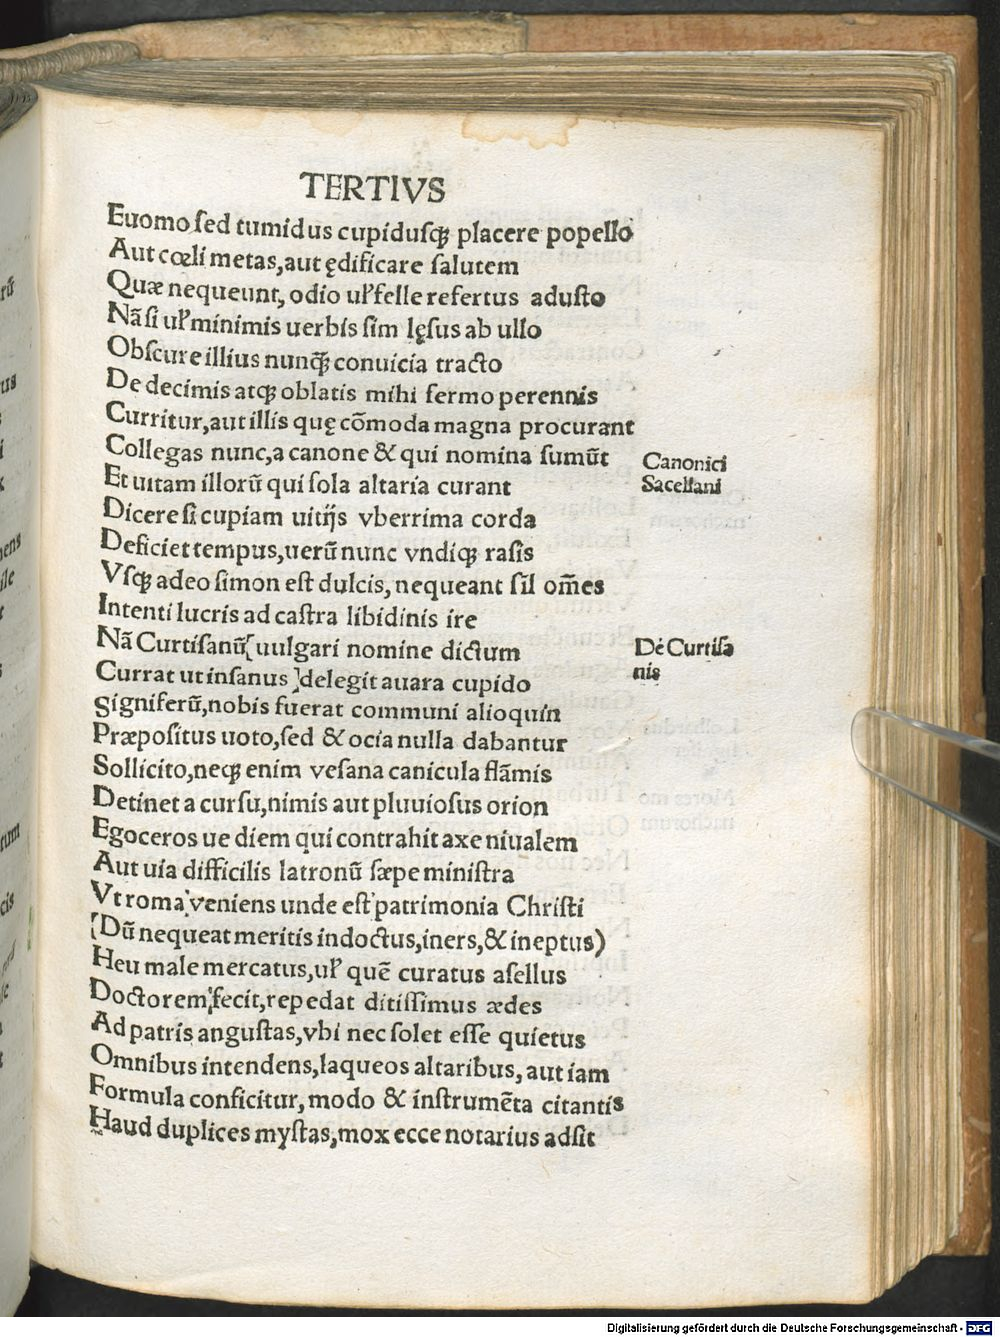 TERTIVS
Euomo sed tumidus cupidusqꝫ placere popello
Aut cœli metas, aut ędificare salutem
Quæ nequeunt, odio uꝉ felle refertus adusto
Nã si uꝉ minimis uerbis sim lęsus ab ullo
Obscure illius nunq̃ꝫ conuicia tracto
De decimis atqꝫ oblatis mihi sermo perennis
Curritur, aut illis quę cõmoda magna procurant
Collegas nunc, a canone & qui nomina sumũt
Canonici
Et uitam illorũ qui sola altaria curant
Sacellani
Dicere si cupiam uitijs vberrima corda
Deficiet tempus, uerũ nunc vndiqꝫ rasis
Vsqꝫ adeo simon est dulcis, nequeant sil om̃es
Intenti lucris ad castra libidinis ire
Nã Curtisanũ( uulgari nomine dictum
De Curtisa
Currat ut insanus )delegit auara cupido
nis
gigniferũ, nobis fuerat communi alioquin
Præpositus uoto, sed & ocia nulla dabantur
Sollicito, neqꝫ enim vesana canicula flãmis
Detinet a cursu, nimis aut pluuiosus orion
Egoceros ue diem qui contrahit axe niualem
Aut uia difficilis latronũ sæpe ministra
Vt roma veniens unde est patrimonia Christi
(Dũ nequeat meritis indoctus, iners, & ineptus)
Heu male mercatus, uꝉ quẽ curatus asellus
Doctorem fecit, repedat ditissimus ædes
Ad patris angustas, vbi nec solet esse quietus
Omnibus intendens, laqueos altaribus, aut iam
Formula conficitur, modo & instrumẽta citantis
Haud duplices mystas, mox ecce notarius adsit
Digitalisierung gefördert durch die Deutsche Forschungsgemeinschaft - DFG